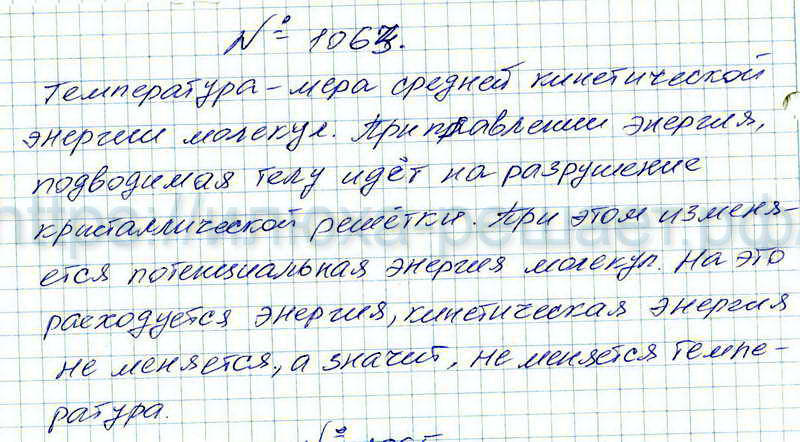 № 1063.
Температура – мера средней кинетической
энергии молекул. При плавлении энергия,
подводимая телу идёт на разрушение
кристаллической решётки. При этом изменя-
ется потенциальная энергия молекул. На это
расходуется энергия, кинетическая энергия
не меняется, а значит, не меняется темпе-
ратура.